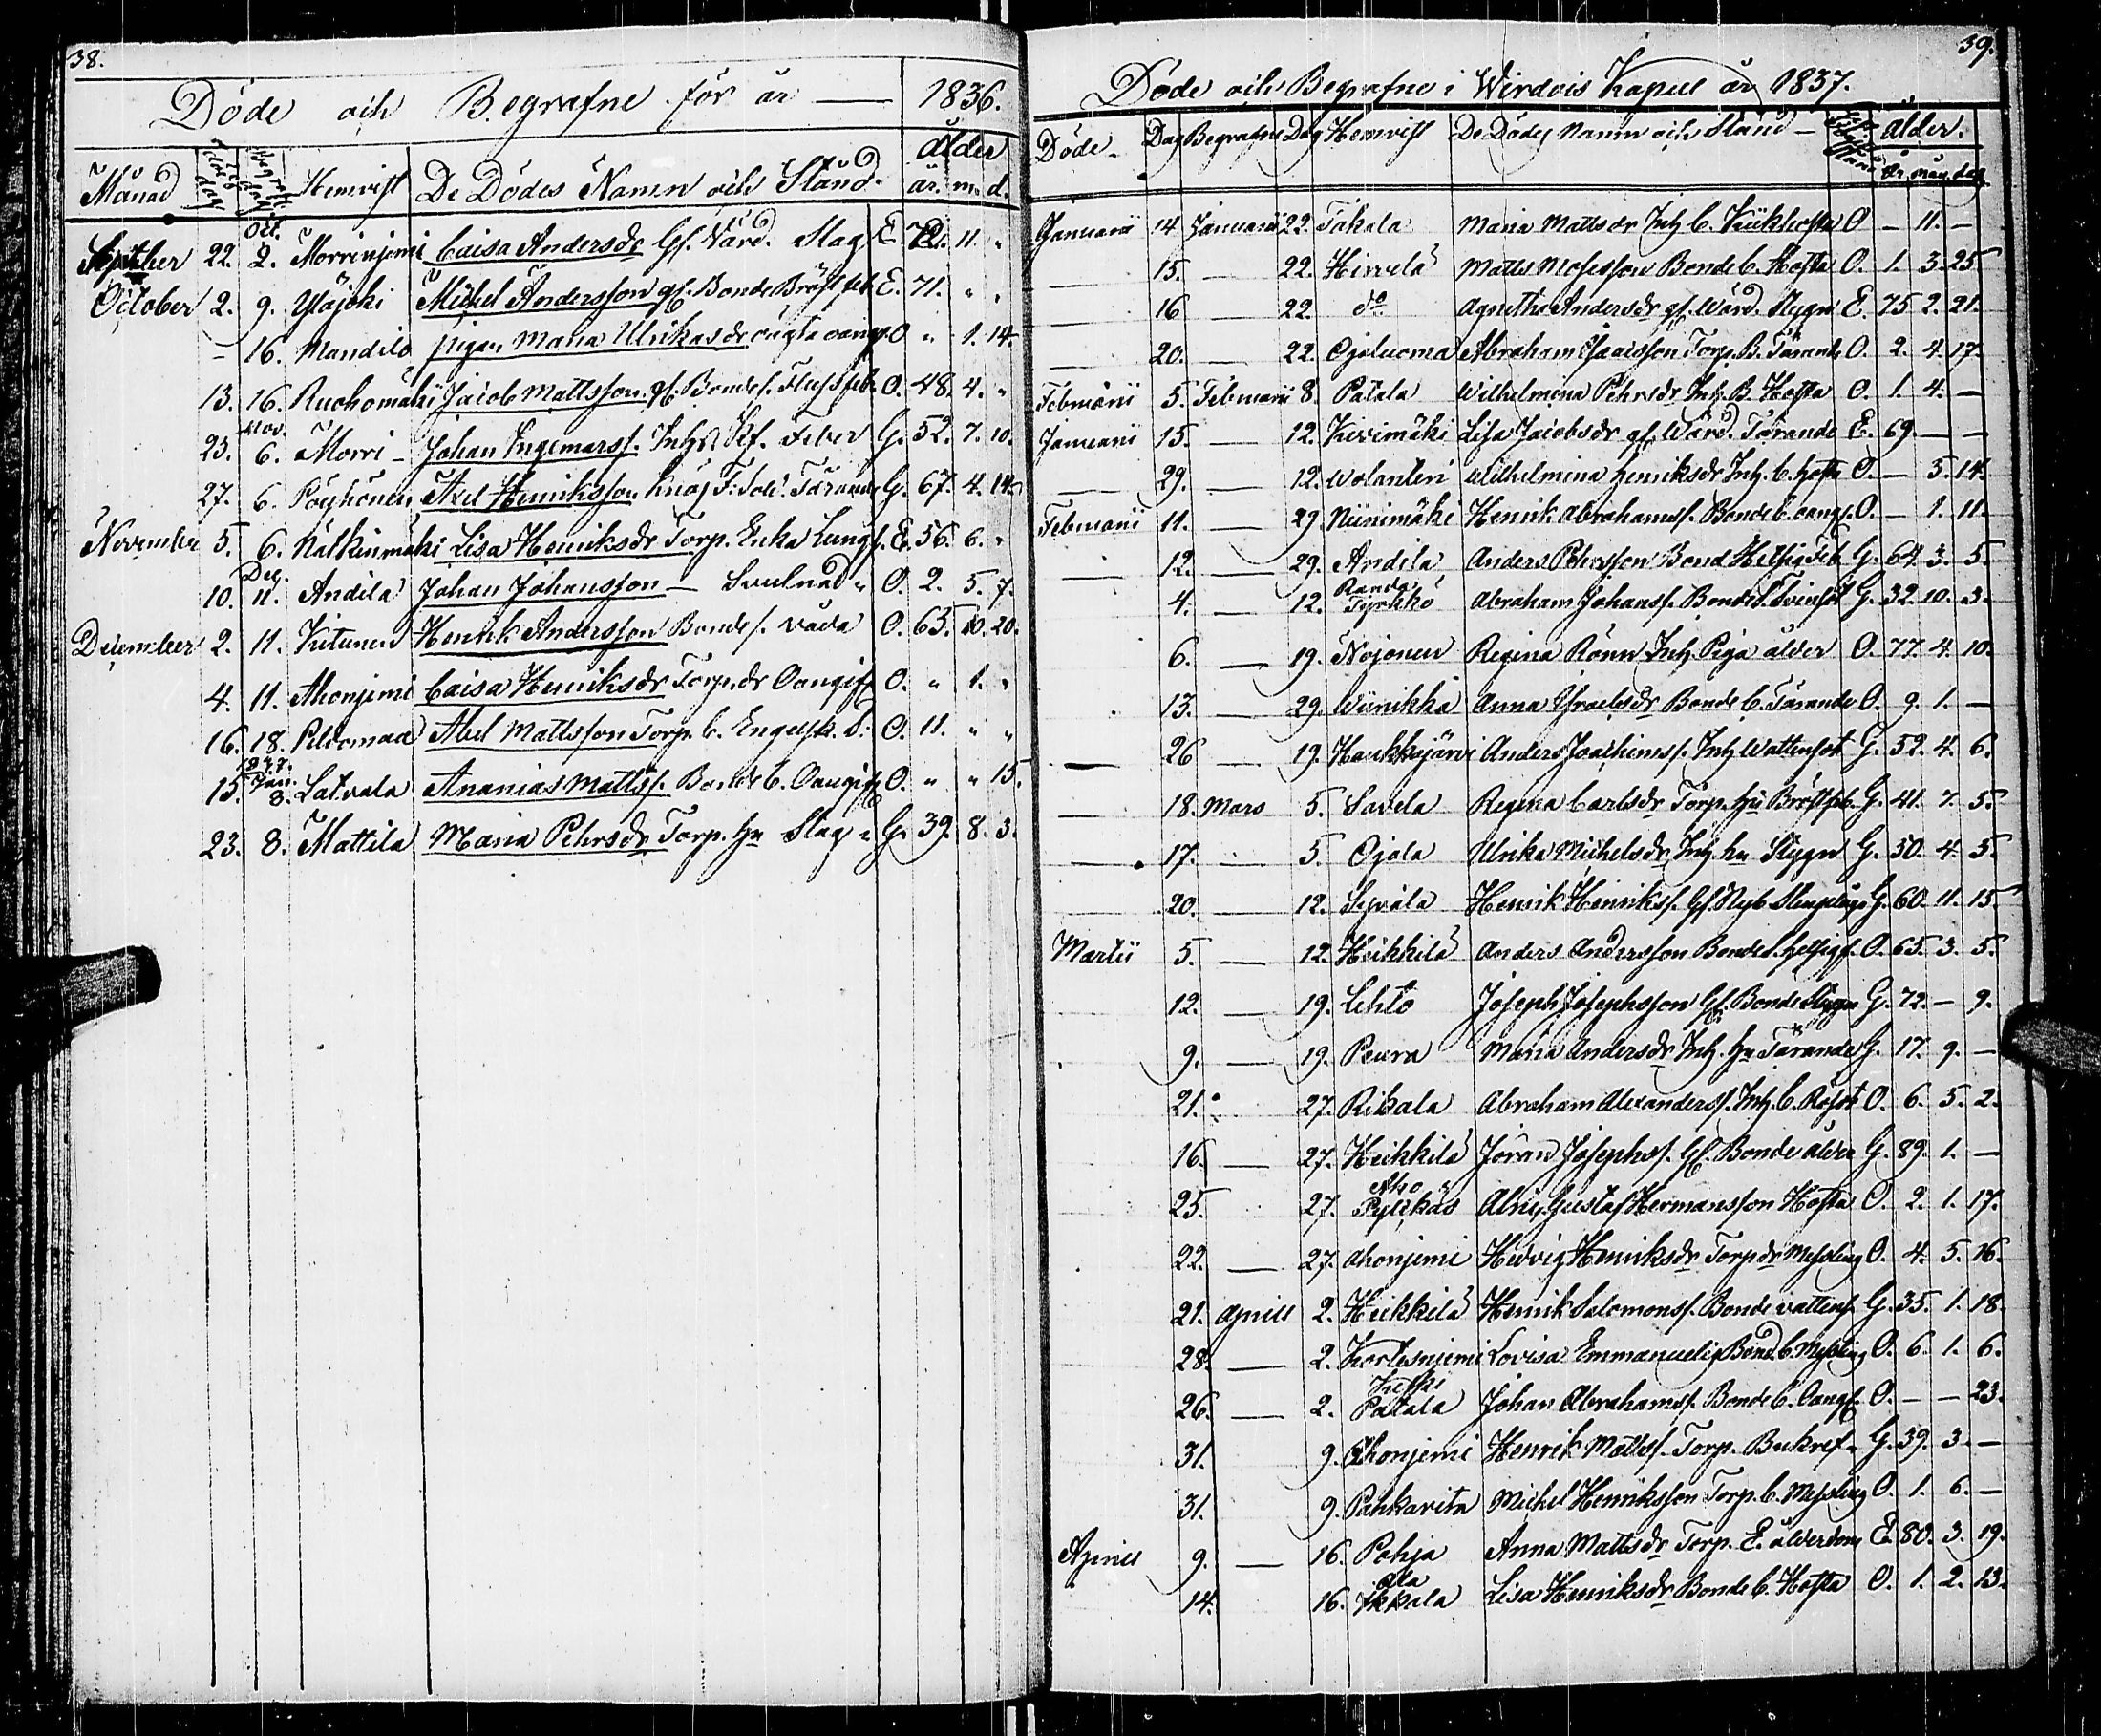 38.
Döde och Begrafne för år — 1836.
Månad Hemvist De Dödes Namn och Stånd. ålder
år. m. d.
Oct.
September 22. 2. Morrinjemi Caisa Andersdr Gf. Värd. Slag E. 72. 11. "
October 2. 9. Yläjoki Michel Andersson gf. Bonde Bröstfeb E. 71. " "
- 16. Mandila pigan Maria Ulrikasdr oägta oang. O " 1. 14.
13. 16. Ruohomäki Jacob Mattsson gf. Bondes. Flussfeb. O. 48. 4. "
Nov.
23. 6. Morri - Johan Ingemarss. Inh. Feber G. 52. 7. 10.
27. 6. Pöyhönen Axel Henriksson Tärande G. 67. 4. 14.
November 5. 6. Kalkinmäki Lisa Henriksdr Torp. Enka Lungs. E. 56. 6. "
Dec.
10. 11. Andila Johan Johansson — Svulnad " O. 2. 5. 7.
December 2. 11. Kitunen Henrik Andersson Bondes. våda O. 63. 10. 20.
4. 11. Ahonjemi Caisa Henriksdr Torp. dr Oangif. O. " 1. "
16. 18. Peldomaa Abel Mattsson Torp. b. Engelsk. S. O. 11. " "
1837.
Jan.
15. 8. Latvala Ananias Mattss. Bonde b. Oangif. O. " " 15.
23. 8. Mattila Maria Pehrsdr Torp. hu Slag " G. 39. 8. 3.
39.
Döde och Begrafne i Wirdois Kapell år 1837.
Döde Dag Begrafne Dag Hemvist De Dödes Namn och Stånd — ålder.
år mån dag
Januarii 14. Januarii 22. Takala Maria Mattsdr Inh. b. Kikhosta O — 11. —
15. — 22. Hirvelä Matts Mosesson Bonde b. Hosta O. 1. 3. 25.
16 — 22. do Agnetha Andersdr gf. Wärd. Stygn E. 75 2. 21.
20. 22. Ojaluoma Abraham Isacsson Torp. B. Tärande O. 2. 4. 17.
Februarii 5. Februarii 8. Patala Wilhelmina Pehrsdr Inh. B. Hosta O. 1. 4. —
Januarii 15. — 12. Kivimäki Lisa Jacobsdr gf. Wärd. Tärande E. 69 — —
29. — 12. Wolanten Wilhelmina Henriksdr Inh. b. hosta O. — 5. 14.
Februarii 11. — 29. Niinimäki Henrik Abrahamss. Bonde b. oang. O. — 1. 11.
12. — 29. Andila Anders Pehrsson Bond Hetsig Feb G. 64. 3. 5.
Randa
4. — 12. Tyrkkö Abraham Johanss. Bonde Tvinsot G. 32. 10. 3.
6. — 19. Nojonen Regina Rönn Inh. Piga ålder O. 77. 4. 10.
13. — 29. Wiinikka Anna Israelsdr Bonde b. Tärande O. 9. 1. —
26 — 19. Haukkajärvi Anders Joachimss. Inh. Wattensot G. 52. 4. 6.
18. Mars 5. Savela Regina Carlsdr Torp. hu Bröstfeb. G. 41. 7. 5.
17. 5. Ojala Ulrika Michelsdr Inh. hu Stygn G. 50. 4. 5.
20. — 12. Sipilä Henrik Henrikss. Gf. G. 60. 11. 15.
Martii 5. — 12. Heikkilä Anders Andersson Bonde S. hetsigf. O. 65. 3. 5.
12. — 19. Lehto Joseph Josephsson Gf. Bonde Stygn G. 72. — 9.
9. — 19. Peura Maria Andersdr Inh. hu Tärande G. 17. 9. —
21. 27. Rikala Abraham Alexanderss. Inh. b. Rosot O. 6. 5. 2.
16. — 27. Heikkilä Jöran Josephss. Gf. Bonde ålder G. 89. 1. —
Aho
25. 27. Pylkäs Gustaf Hermansson Hosta O. 2. 1. 17.
22. — 27. Ahonjemi Hedvig Henriksdr Torp dr Messling O. 4. 5. 16.
21. Aprill 2. Heikkilä Henrik Salomonss. Bonde vattens. G. 35. 1. 18.
28. — 2. Kortesnjemi Lovisa Emmanuelsdr Bond. b. Messling O. 6. 1. 6.
Keski
26. — 2. Patala Johan Abrahamss. Bonde b. Oangf. O. — — 23.
31. 9. Ahonjemi Henrik Mattss. Torp. Bukref. G. 39. 3. —
31. 9. Pahkavita Michel Henriksson Torp. b. Messling O. 1. 6. —
Aprill 9. — 16. Pohja Anna Mattsdr Torp. E. ålderdom E. 80. 3. 19.
Ala
14. 16. Ikkala Lisa Henriksdr Bonde b. Hosta O. 1. 2. 13.